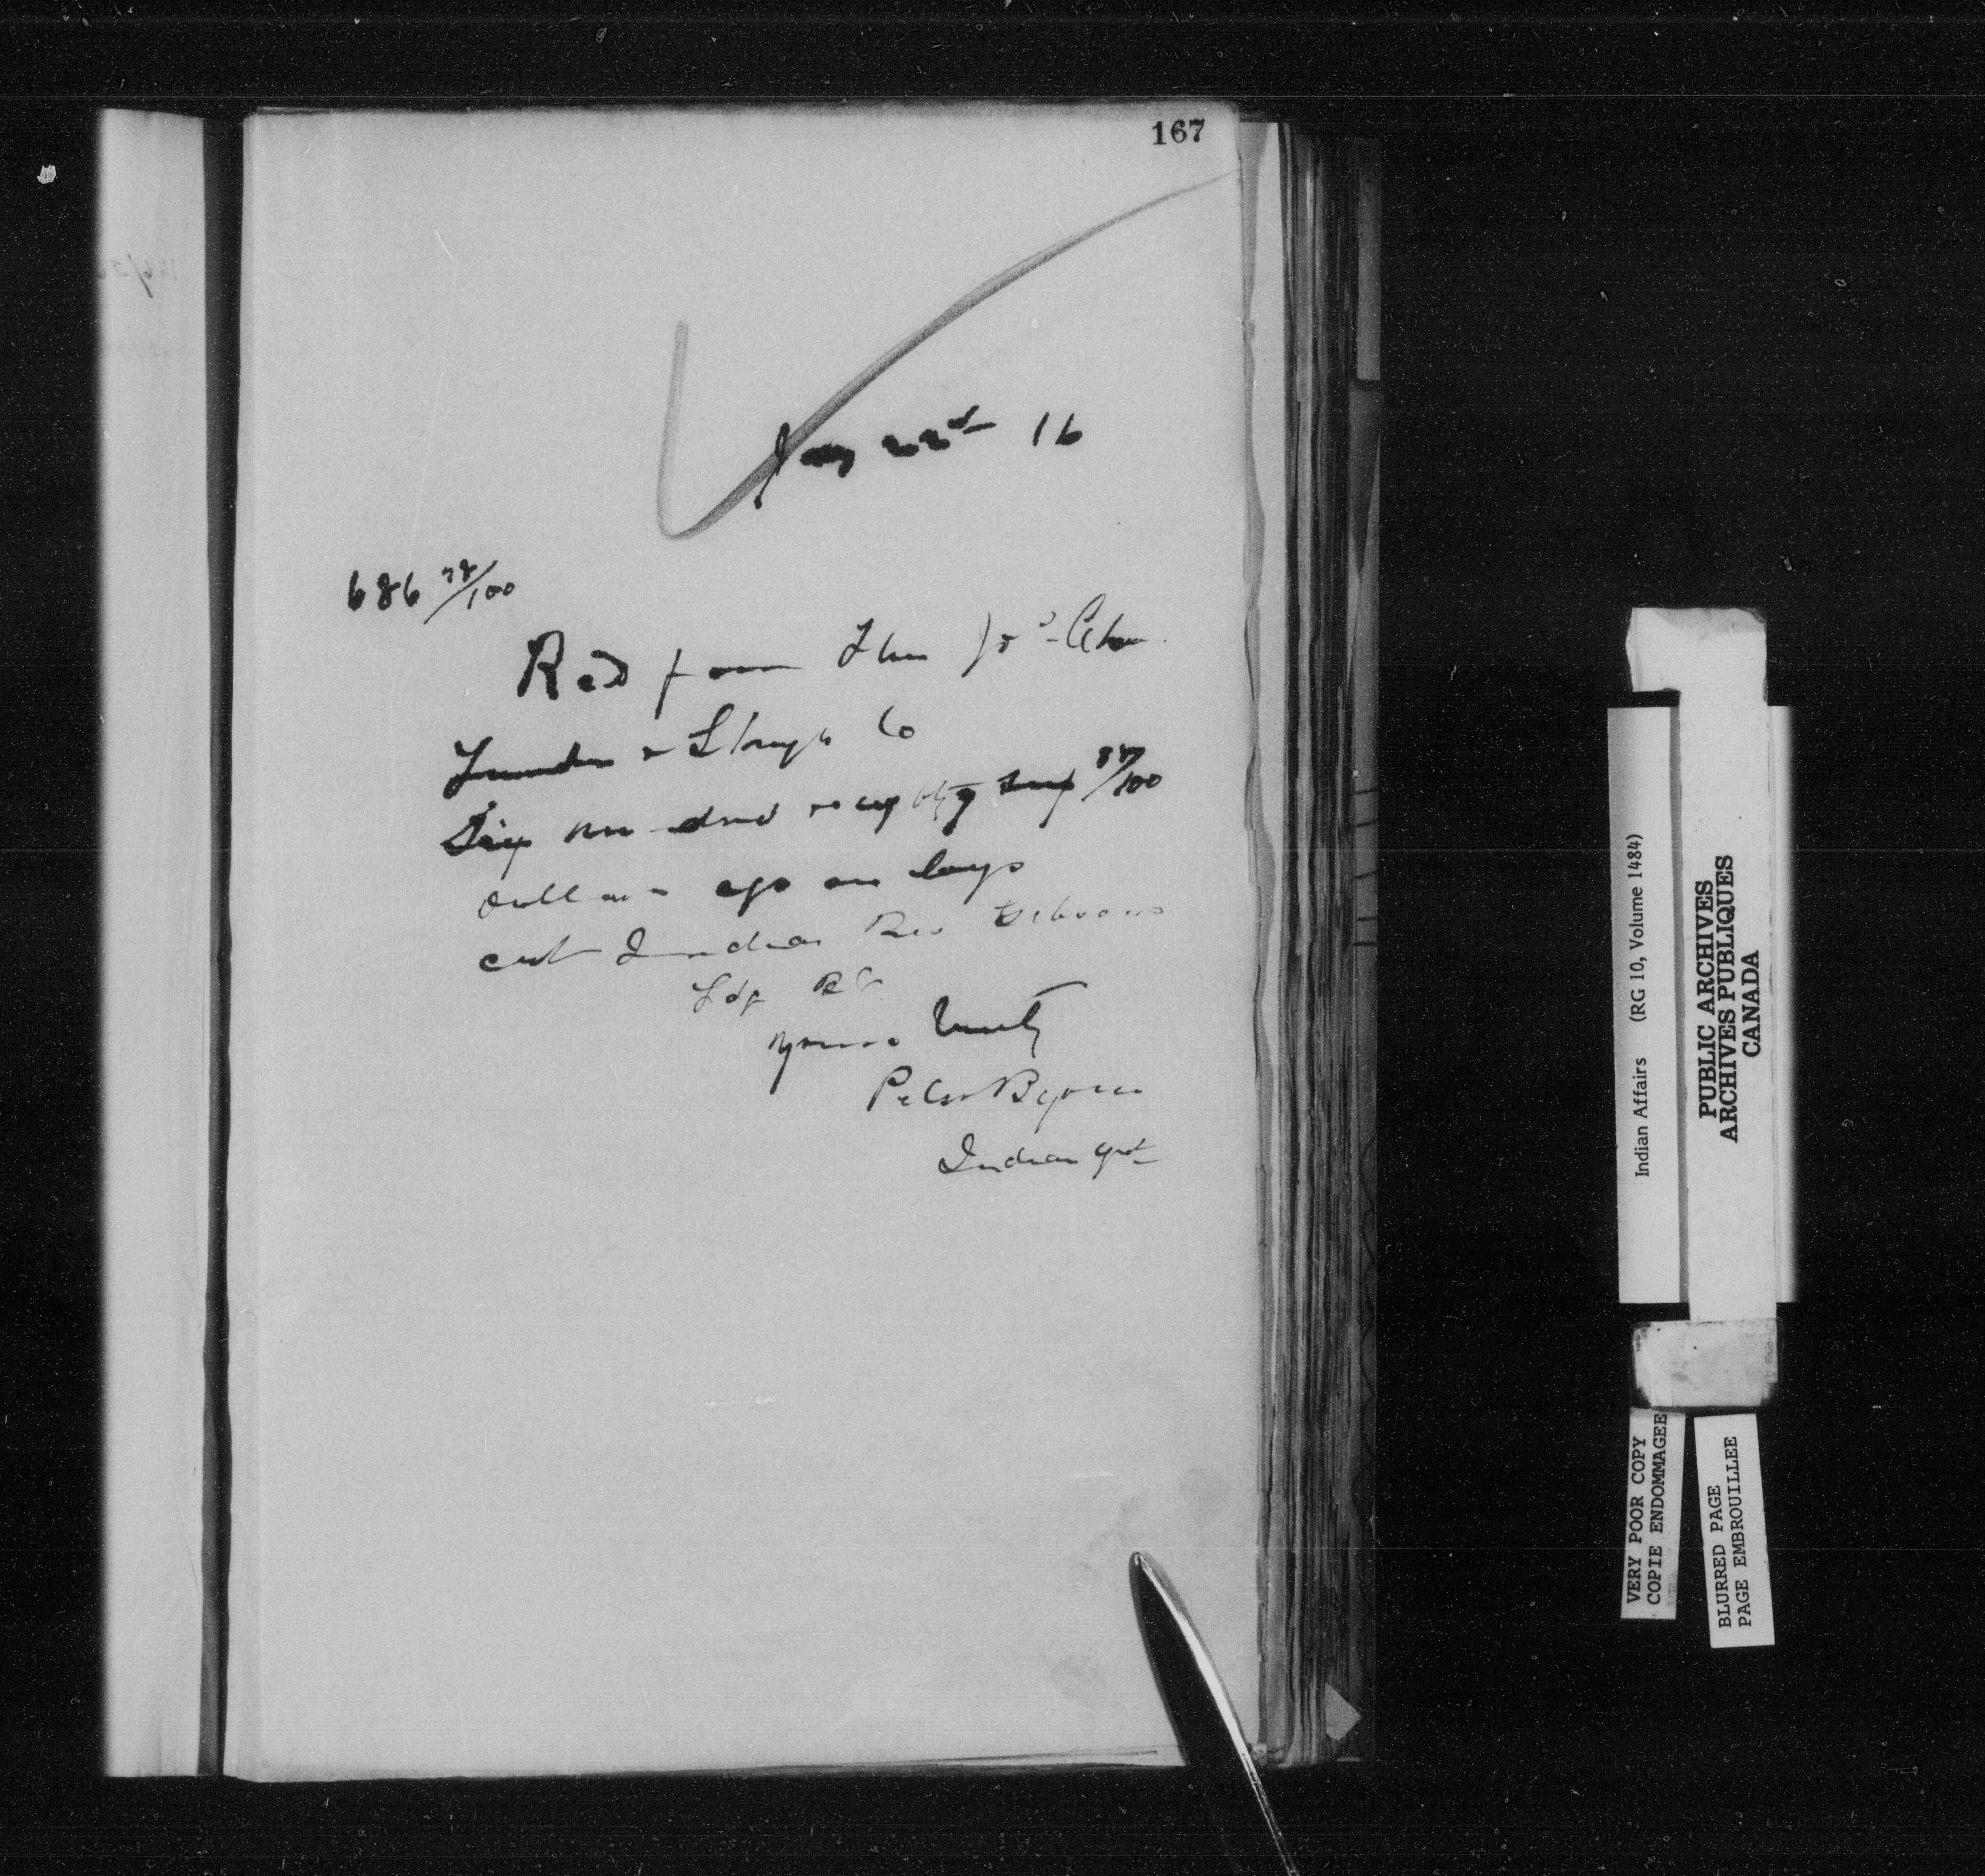 167
Jany 22nd 16
686 78/100
Recd from The Jos Chew
Lumber & Shingle Co
Six hundred & eighty six 78/100
dollars a/c on logs
cut Indian Res
Ldg B C
Yours truly
Peter Byrne
Indian Agt
Indian Affairs (RG 10, Volume 1484)
PUBLIC ARCHIVES
ARCHIVES PUBLIQUES
CANADA
VERY POOR COPY
COPIE ENDOMMAGEE
BLURRED PAGE
PAGE EMBROUILLEE